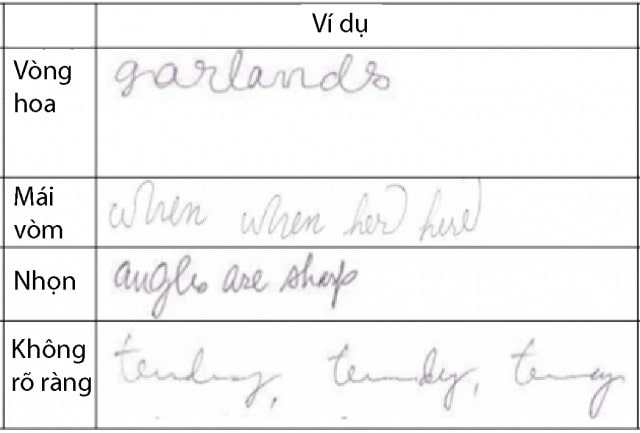 Ví dụ
Vòng hoa garlands
Mái vòm when when her here
Nhọn angles are sharp
Không rõ ràng